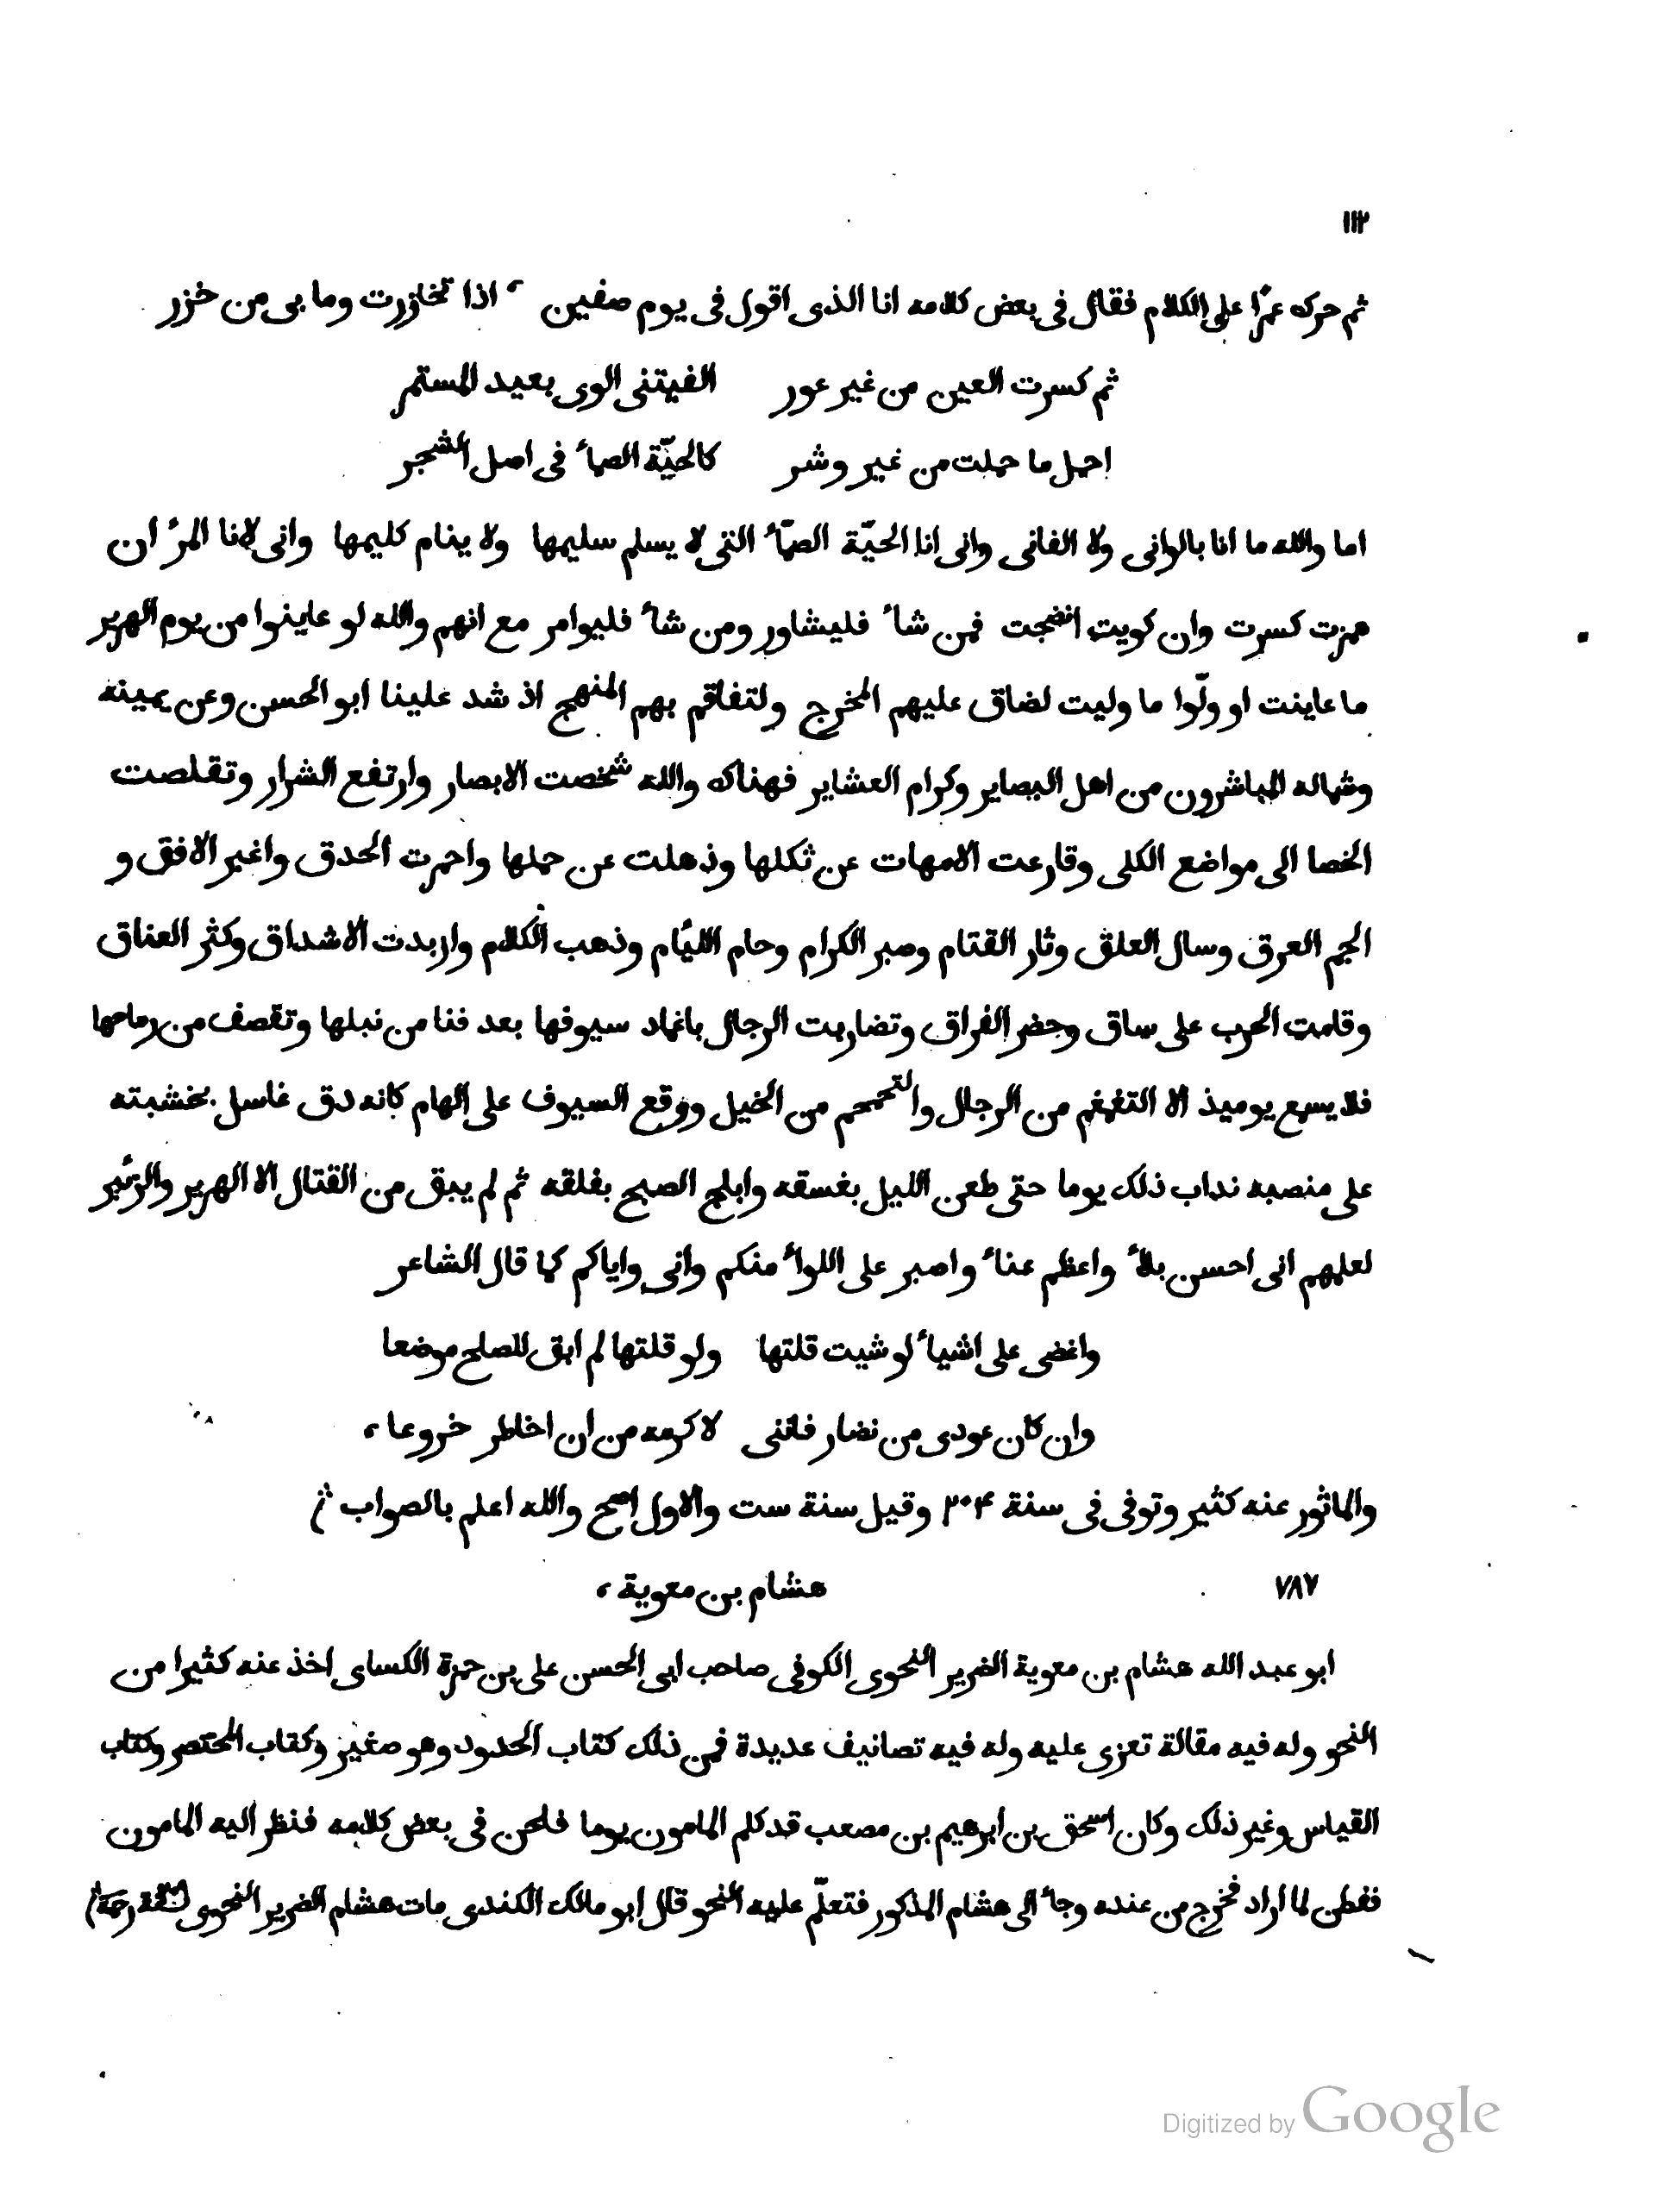 ١١٢
ثم حرك عمرًا على الكلام فقال فى بعض كلامه انا الذى اقول فى يوم صفين ، اذا تخازرت وما بى من خزر
ثم كسرت العين من غير عور الفيتنى الوى بعيد المستمر
احمل ما حملت من غير وشر كالحيّة الصمأ فى اصل الشجر
اما والله ما انا بالوانى ولا الفانى وانى انا الحيّة الصمّأ التى لا يسلم سليمها ولا ينام كليمها وانى لانا المرٔ ان
همزت كسرت وان كويت انضجت فمن شأ فليشاور ومن شأ فليوامر مع انهم والله لو عاينوا من يوم الهرير
ما عاينت او ولّوا ما وليت لضاق عليهم المخرج ولتفاقم بهم المنهج اذ شد علينا ابو الحسن وعن يمينه
وشماله المباشرون من اهل البصاير وكرام العشاير فهناك والله شخصت الابصار وارتفع الشرار وتقلصت
الخصا الى مواضع الكلى وقارعت الامهات عن ثكلها وذهلت عن حملها واحمرت الحدق واغبر الافق و
الجم العرق وسال العلق وثار القتام وصبر الكرام وحام اللئام وذهب الكلام واربدت الاشداق وكثر العناق
وقامت الحرب على ساق وحضر الفراق وتضاربت الرجال باغماد سيوفها بعد فنا من نبلها وتقصف من رماحها
فلا يسمع يوميذ الا التغمغم من الرجال والتحمحم من الخيل ووقع السيوف على الهام كانه دق غاسل بخشبته
على منصبه نداب ذلك يوما حتى طعن الليل بغسقه وابلج الصبح بفلقه ثم لم يبق من القتال الا الهرير والزئير
لعلمهم انى احسن بلأ واعظم عنأ واصبر على اللوأ منكم وانى واياكم كما قال الشاعر
واغضى على اشيأ لو شيت قلتها ولو قلتها لم ابق للصلح موضعا
وان كان عودى من نضار فاننى لاكرمه من ان اخاطر خروعا ،
والماثور عنه كثير وتوفى فى سنة ٢٠۴ وقيل سنة ست والاول اصح والله اعلم بالصواب
٧٨٧ هشام بن معوية ،
ابو عبد الله هشام بن معوية الضرير النحوى الكوفى صاحب ابى الحسن على بن حمزة الكساى اخذ عنه كثيرا من
النحو وله فيه مقالة تعزى عليه وله فيه تصانيف عديدة فمن ذلك كتاب الحدود وهو صغير وكتاب المختصر وكتاب
القياس وغير ذلك وكان اسحق بن ابرهيم بن مصعب قد كلم المامون يوما فلحن فى بعض كلامه فنظر اليه المامون
ففطن لما اراد فخرج من عنده وجأ الى هشام المذكور فتعلّم عليه النحو قال ابو مالك الكندى مات هشام الضرير النحوى
Digitized by Google